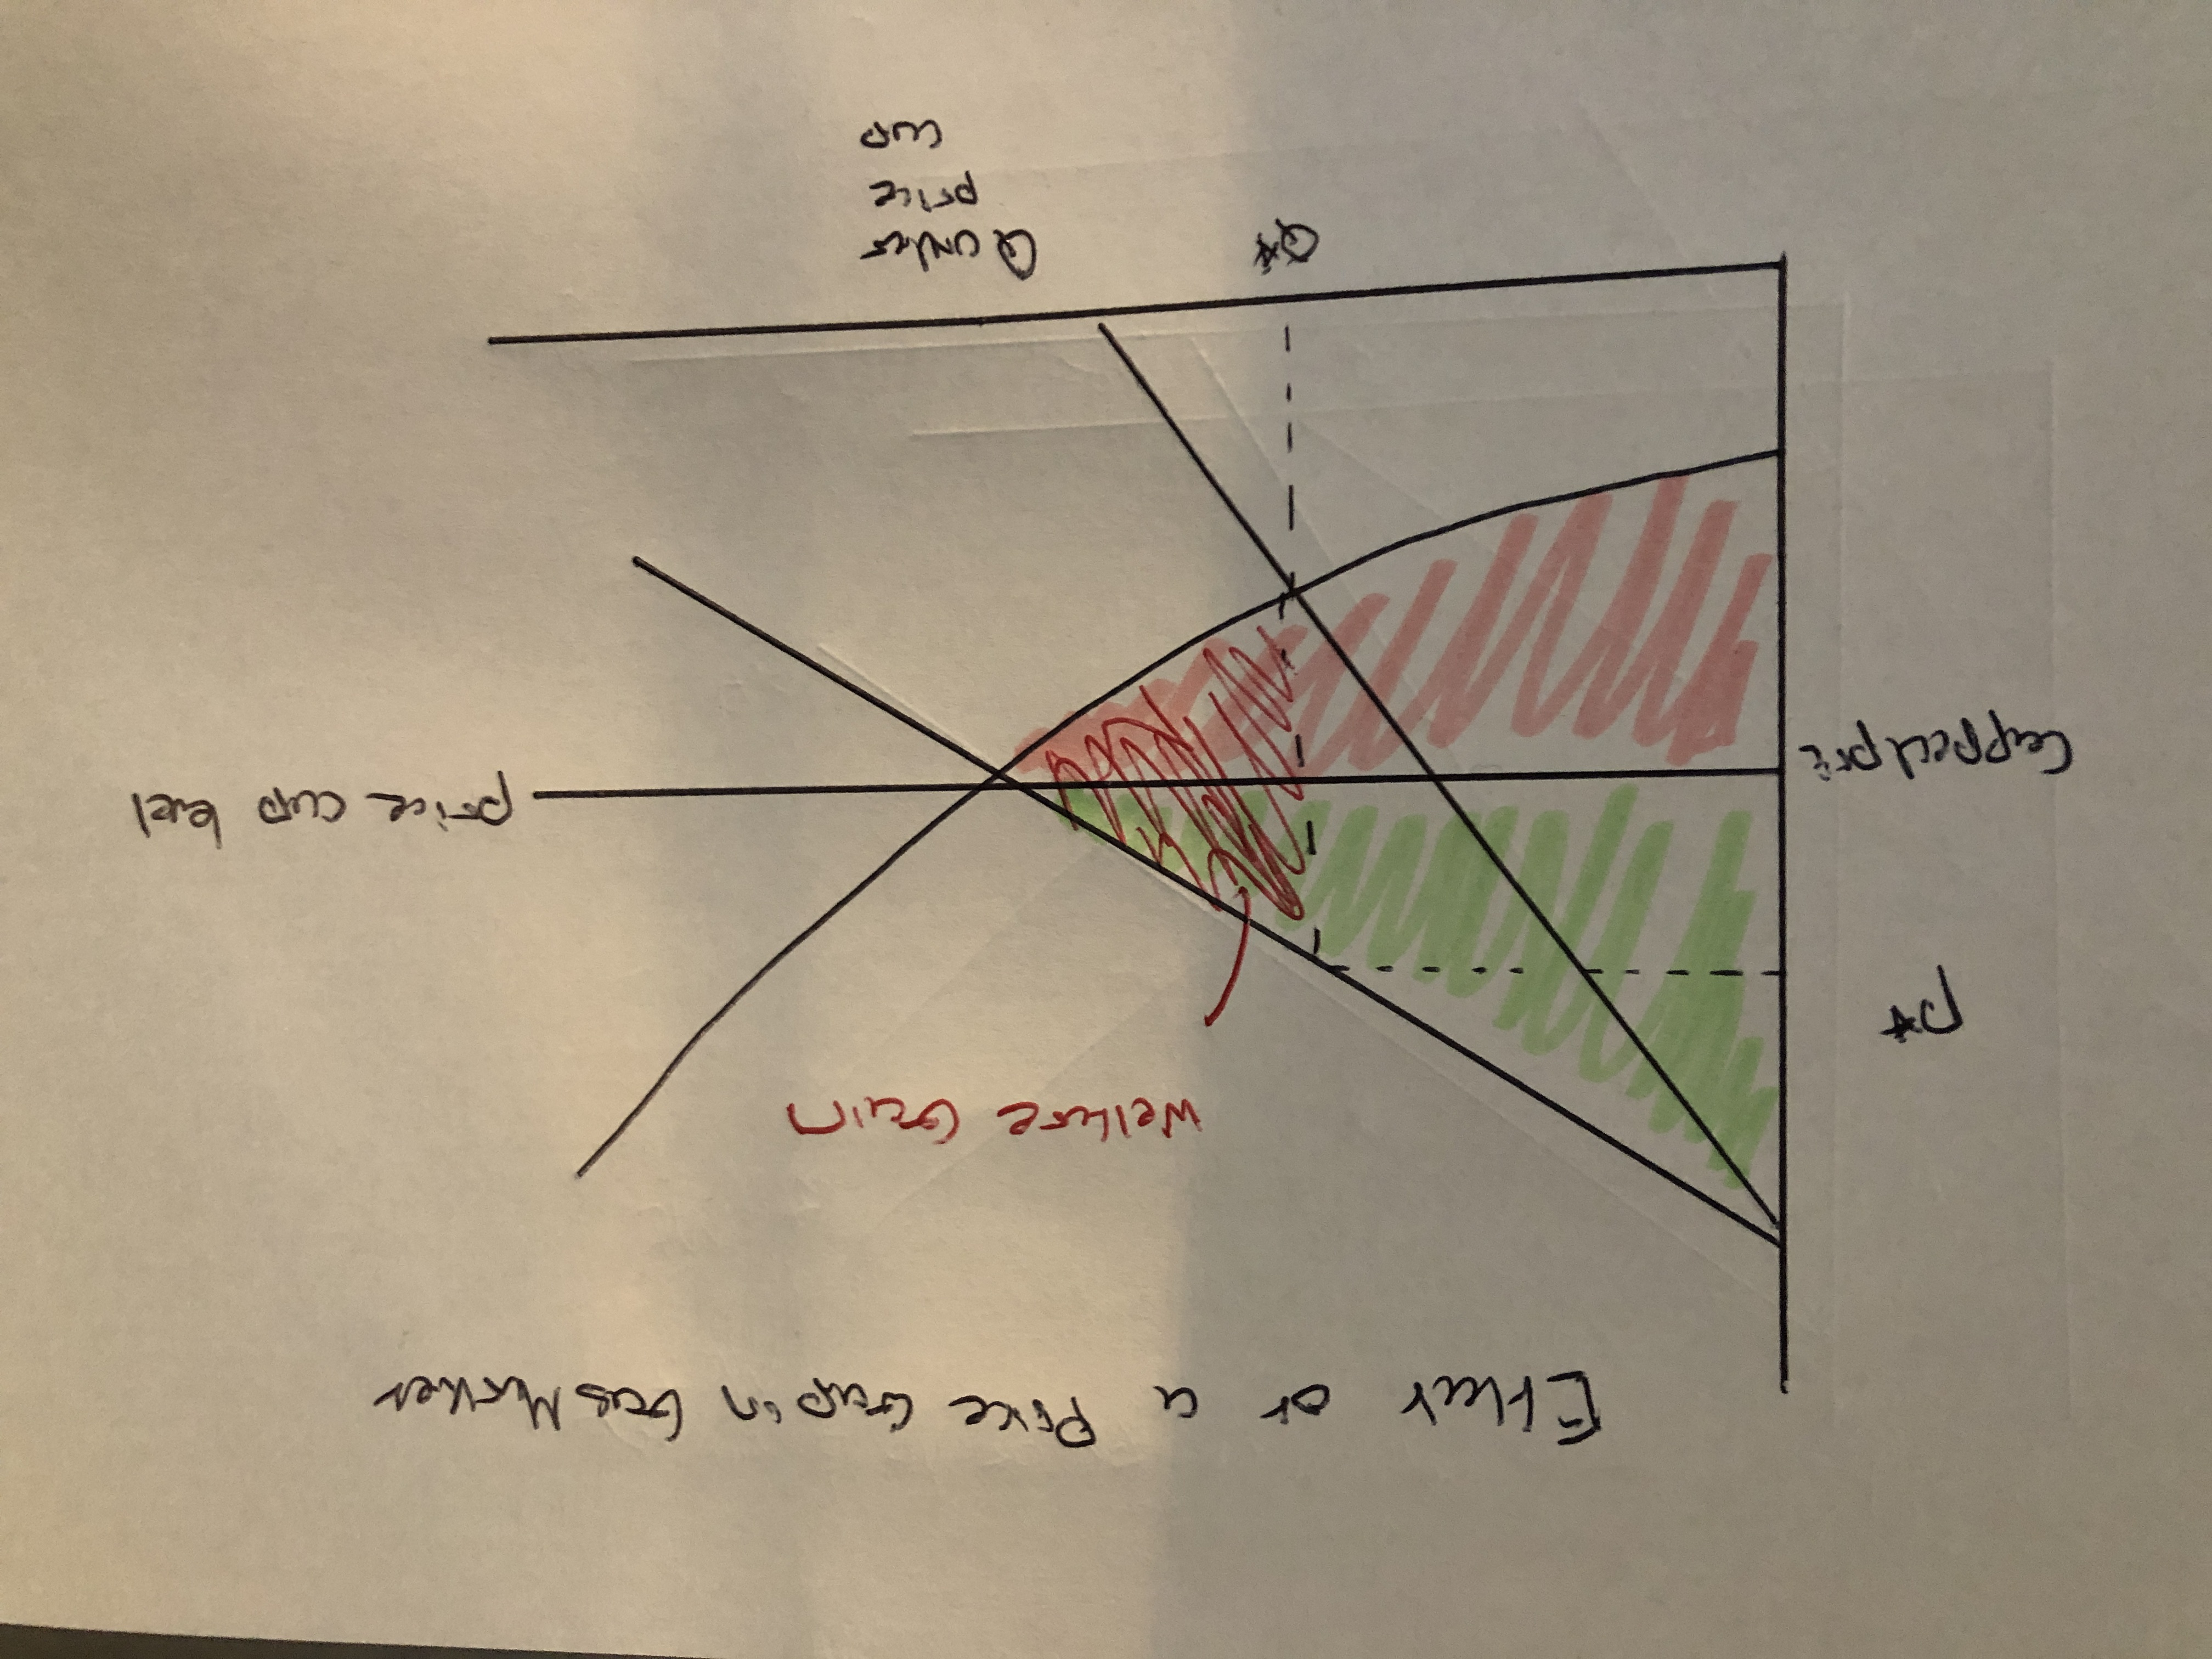 Effect of a Price Cap in Gas Market
Welfare Gain
price cap level
P*
Capped pric
Q*
Q under
price
cap